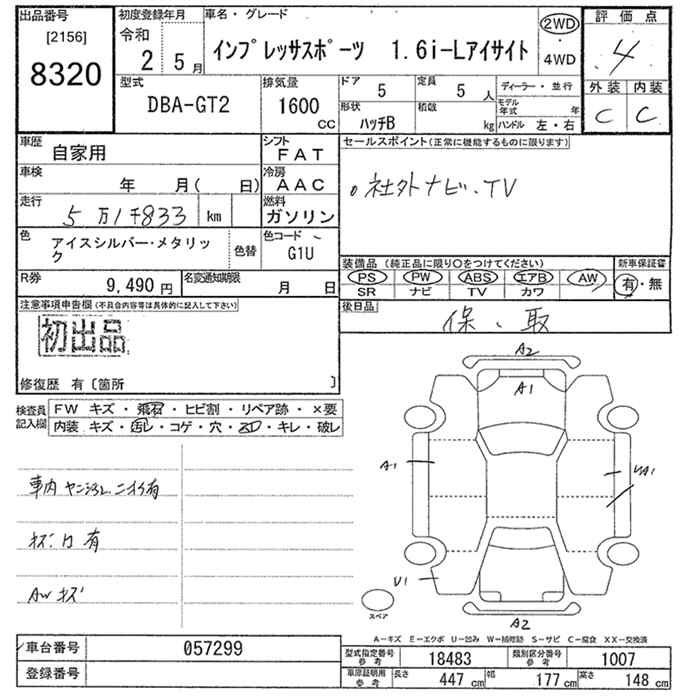 出品番号 初度登録年月 車名・グレード 2WD 評価点
[2156] 令和 インプレッサスポーツ 1.6i-Lアイサイト ・ 4
8320 2年 5月 4WD
型式 排気量 ドア 5 定員 5人 ディーラー・並行 外装 内装
DBA-GT2 1600cc 形状 ハッチB 積載 kg モデル年式 年 C C
ハンドル 左・右
車歴 自家用 シフト FAT セールスポイント(正常に機能するものに限ります)
車検 年 月( 日) 冷房 AAC 社外ナビ、TV
走行 5万1千833 km 燃料 ガソリン
色 アイスシルバー・メタリック 色替 色コード G1U
装備品(純正品に限り○をつけてください) 新車保証書
R券 9,490円 名変通知期限 月 日 PS PW ABS エアB AW 有・無
SR ナビ TV カワ
注意事項申告欄(不具合内容等は具体的に記入して下さい) 後日品 保、取
初出品
修復歴 有〔箇所 〕
検査員記入欄 FW キズ・飛石・ヒビ割・リペア跡・×要
内装 キズ・汚レ・コゲ・穴・スレ・キレ・破レ
A2
A1
A1
車内 ヤニ汚レ ニオイ有
キズ、凹 有
AW キズ
U1
スペア
A2
A-キズ E-エクボ U-凹み W-補修跡 S-サビ C-腐食 XX-交換済
車台番号 057299 型式指定番号 参考 18483 類別区分番号 参考 1007
登録番号 車庫証明用 参考 長さ 447cm 幅 177cm 高さ 148cm